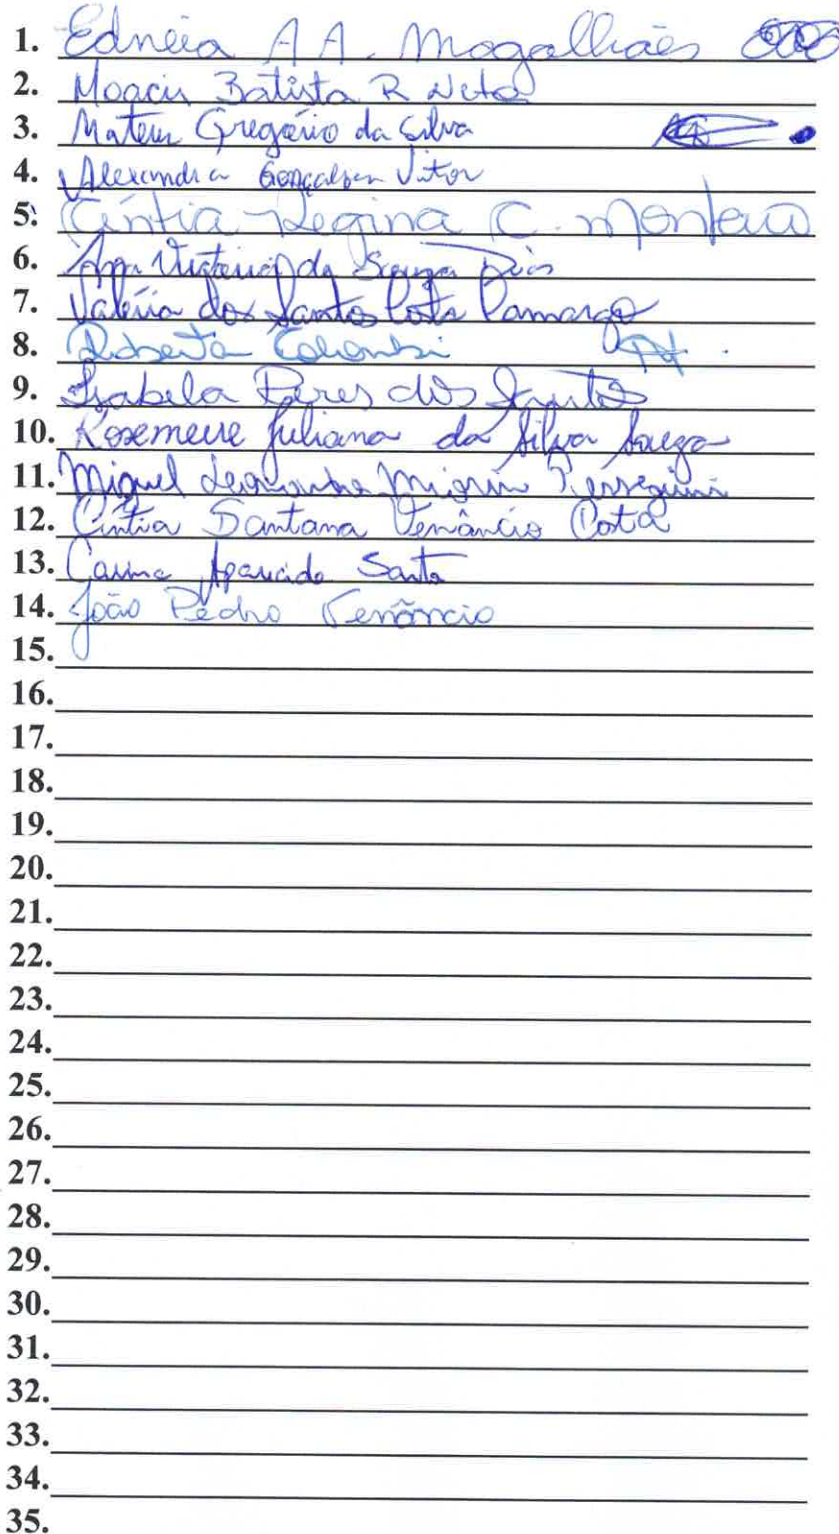 1. Ednéia A A. Magalhães
2. Moacir Batista R Neto
3. Mateus Gregório da Silva
4. Alexandra Gonçalves Vitor
5. Cíntia Regina C. Monteiro
6. Ana Victória de Souza Dias
7. Valéria dos Santos Costa Camargo
8. Roberta Colombi
9. Isabela Peres dos Santos
10. Rosemeire Juliana da Silva Souza
11. Miguel Leonardo
12. Cíntia Santana Venâncio Costa
13. Aparecida Santos
14. João Pedro Venâncio
15.
16.
17.
18.
19.
20.
21.
22.
23.
24.
25.
26.
27.
28.
29.
30.
31.
32.
33.
34.
35.